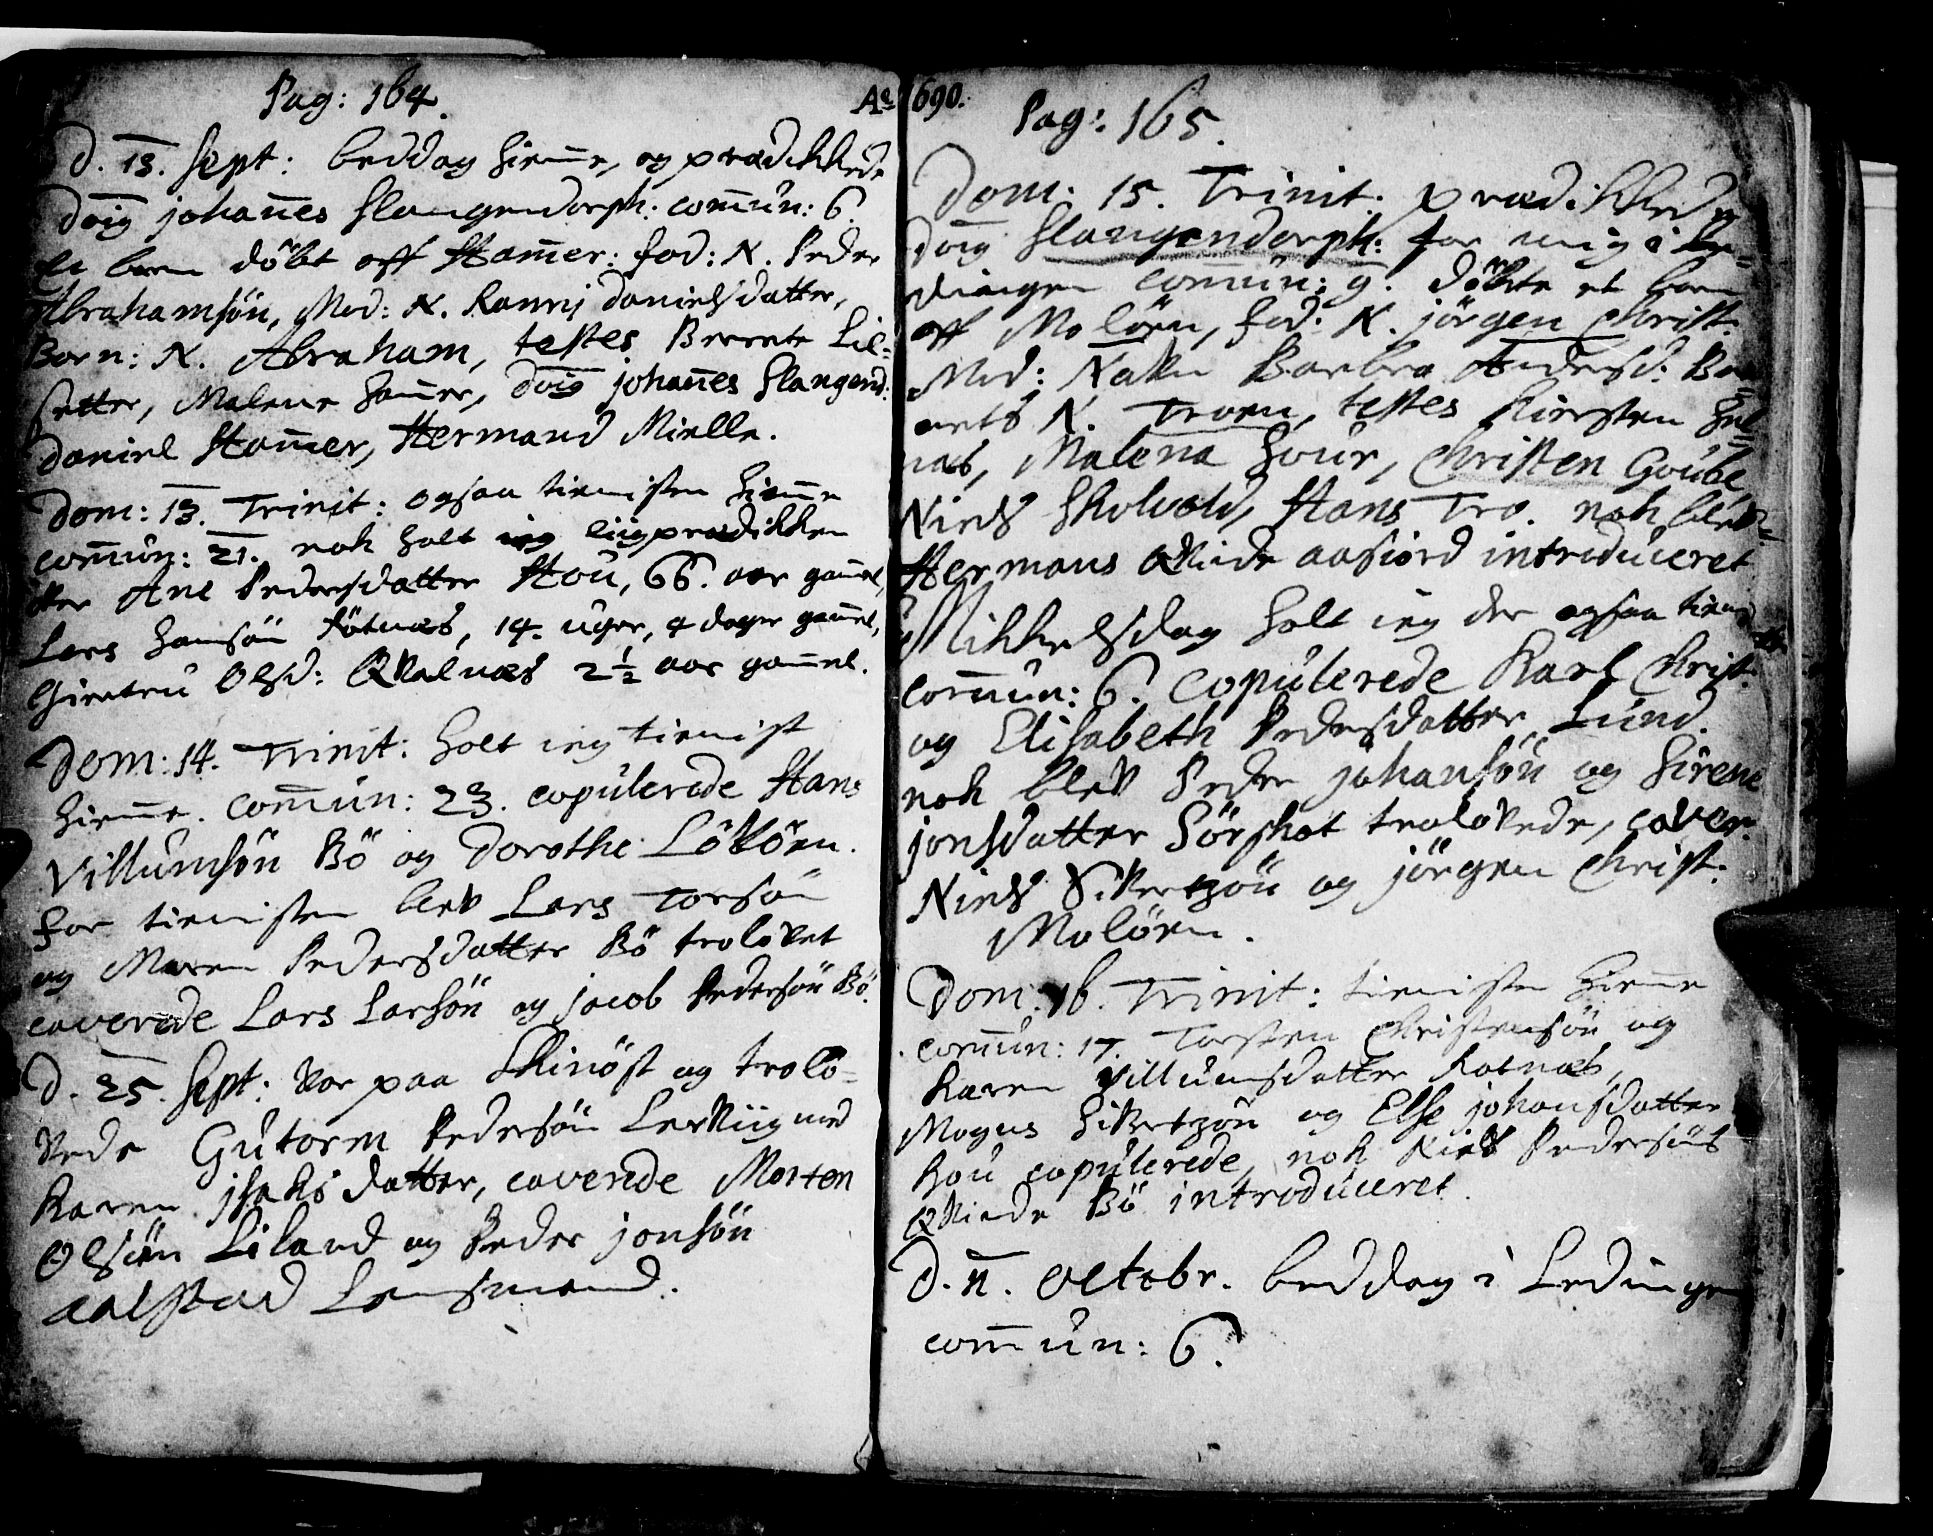 Pag: 164.
Ao 1690.
D. 13. Sept: beddag hiem̄e, og prædikkede
Dn̄g johan̄es Slangendorph: com̄ún: 6.
Et barn döbt aff Ham̄er: fad: N. Peder
Abrahamsön, Mod: N. Ranni danielsdatter,
Barn: N. Abraham, testes Berrete Lil=
setter, Malene ham̄er, Dn̄g johan̄es Slangend:
daniel Ham̄er, Hermand Mielle.
Dom: 13. Trinit: ogsaa tienisten hiem̄e
com̄ún: 21. nok holt ieg liigprædikken
offver Ane Pedersdatter Hoú, 66. aar gam̄el,
Lars hansön Fötnæs, 14. uger, 4 dager gam̄el,
Giertru Olsd: Qvalnæs 2½ aar gam̄el.
Dom: 14. Trinit: holt ieg tienist
hiem̄e. com̄ún: 23. copúlerede Hans
Villúmsön Bö og Dorothe Lökören.
for tienisten blev Lars Torsön
og Maren Pedersdatter Bö trolovet
caverede Lars Larsön og jacob Pedersön Bö.
D. 25. Sept: var paa Skinöst og trolo=
vede Gútorm Pedersön Lerviig med
Karen jsaksdatter, caverede Morten
Olsön Liland og Peder jonsön
aalstad Lensmand.
Pag: 165.
Dom: 15. Trinit: prædikkede
Dn̄g Slangendorph: for mig i Le=
dingen com̄ún: 9. döbte et barn
off Molören, fad: N. jörgen Christ:
Mod: N. Barbra Andersd: Bar=
nets N. Troen, testes Kiersten Hel=
næs, Malena hour, Christen Goube,
Niels Skolvold, Hans Tro. nok blev
Hermans Qvinde aafiord introduceret
Mikkelsdag holt ieg der ogsaa tieniste
com̄ún: 6. copúlerede Karl Christ:
og Elisabeth Pedersdatter Lúnd.
nok blev Peder johansön og Sirene
jonsdatter Sörskot trolovede, caver.
Niels Sivertzön og jörgen Christ:
Molören.
Dom: 16. Trinit: tienisten hiem̄e
com̄ún: 17. Torsten Christensön og
Karen Villumsdatter Kotnæs,
Mogns Sivertzön og Else johansdatter
hoú copúlerede, nok Niels Pedersöns
Qvinde Bö introdúceret.
D. 11. octobr. beddag i Ledingen
com̄ún: 6.